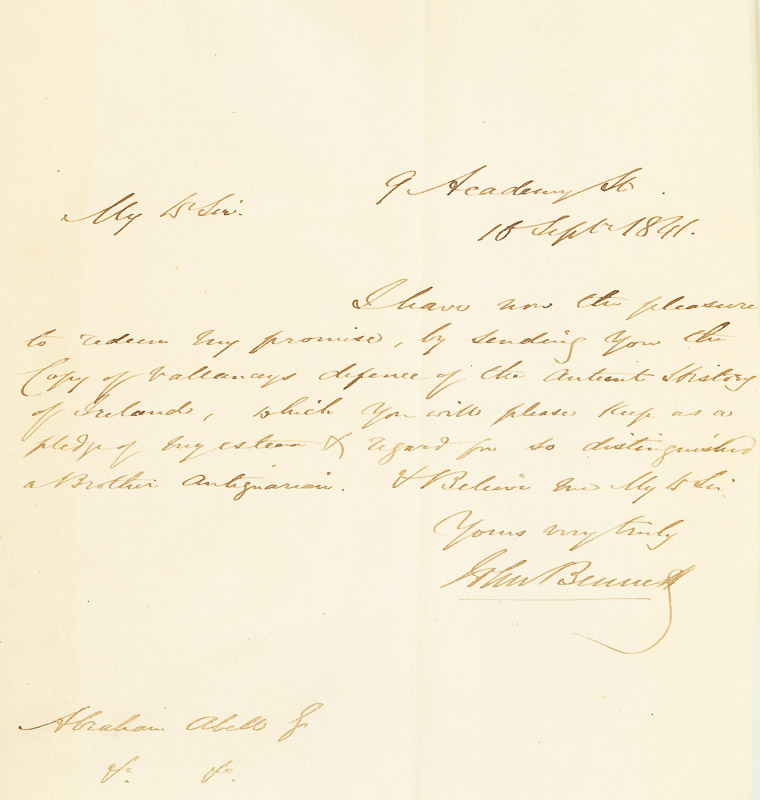 9 Academy St.
My Dr Sir.
18 Septr 1841.
I have now the pleasure
to redeem my promise, by sending you the
Copy of Vallancys defence of the Antient History
of Ireland, which you will please keep as a
pledge of my esteem & regard for so distinguished
a Brother Antiquarian. & Believe me My Dr Sir.
Yours very truly
John Bennett
Abraham Abell
&c. &c.